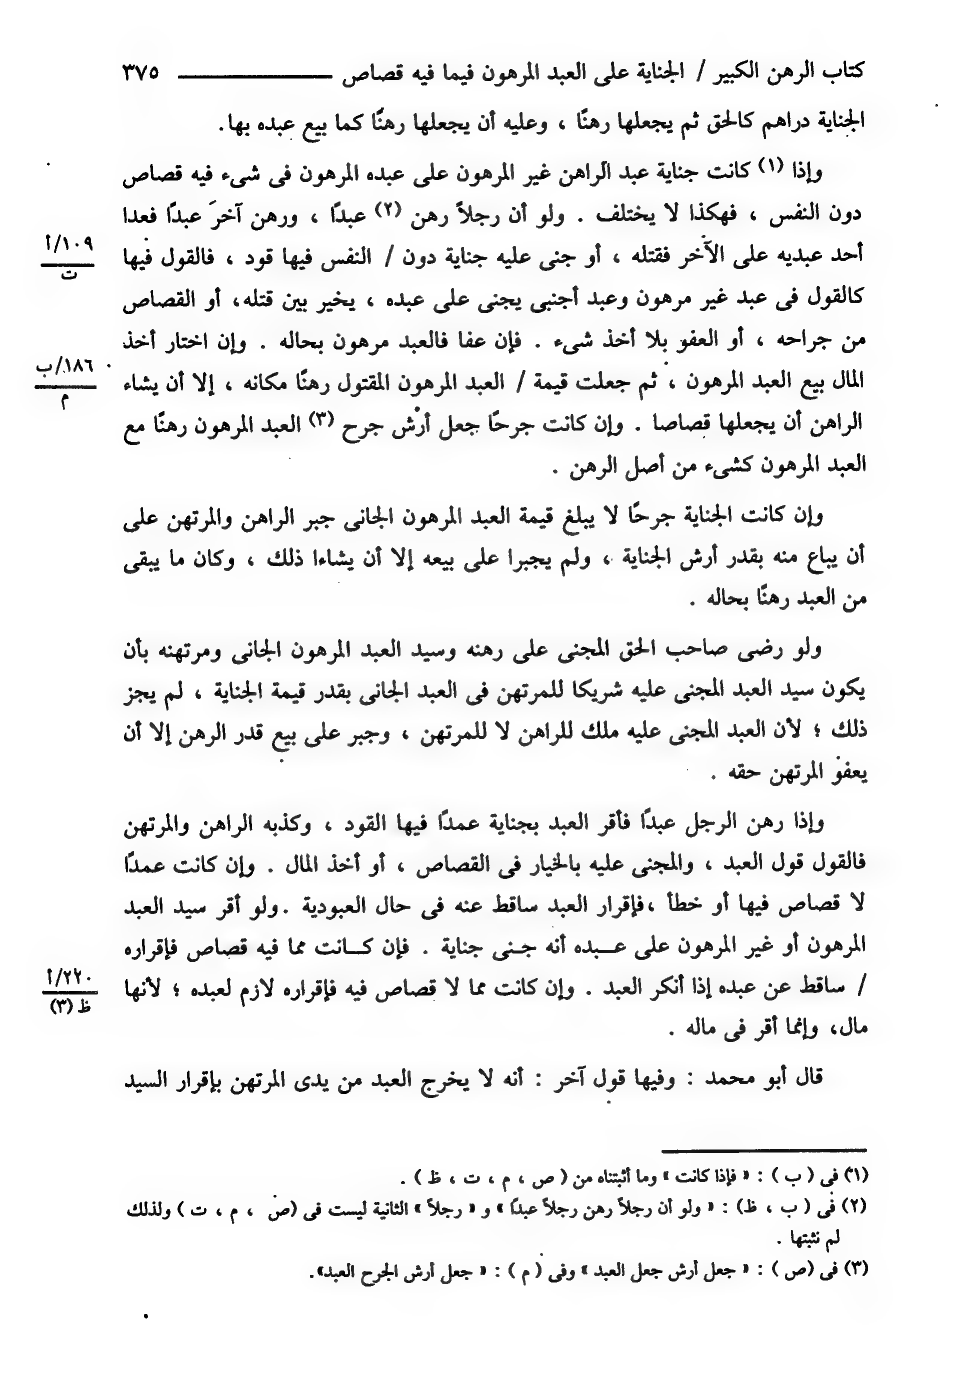 كتاب الرهن الكبير / الجناية على العبد المرهون فيما فيه قصاص ـــــــــ ٣٧٥
الجناية دراهم كالحق ثم يجعلها رهنًا ، وعليه أن يجعلها رهنًا كما بيع عبده بها.
وإذا (١) كانت جناية عبد الراهن غير المرهون على عبده المرهون فى شىء فيه قصاص
دون النفس ، فهكذا لا يختلف . ولو أن رجلاً رهن (٢) عبدًا ، ورهن آخرَ عبدًا فعدا
أحد عبديه على الآخر فقتله ، أو جنى عليه جناية دون / النفس فيها قود ، فالقول فيها
١٠٩/أ
ت
كالقول فى عبد غير مرهون وعبد أجنبى يجنى على عبده ، يخير بين قتله، أو القصاص
من جراحه ، أو العفو بلا أخذ شىء . فإن عفا فالعبد مرهون بحاله . وإن اختار أخذ
المال بيع العبد المرهون ، ثم جعلت قيمة / العبد المرهون المقتول رهنًا مكانه ، إلا أن يشاء
١٨٦/ب
م
الراهن أن يجعلها قصاصا . وإن كانت جرحًا جعل أرش جرح (٣) العبد المرهون رهنًا مع
العبد المرهون كشىء من أصل الرهن .
وإن كانت الجناية جرحًا لا يبلغ قيمة العبد المرهون الجانى جبر الراهن والمرتهن على
أن يباع منه بقدر أرش الجناية ، ولم يجبرا على بيعه إلا أن يشاءا ذلك ، وكان ما يبقى
من العبد رهنًا بحاله .
ولو رضى صاحب الحق المجنى على رهنه وسيد العبد المرهون الجانى ومرتهنه بأن
يكون سيد العبد المجنى عليه شريكا للمرتهن فى العبد الجانى بقدر قيمة الجناية ، لم يجز
ذلك ؛ لأن العبد المجنى عليه ملك للراهن لا للمرتهن ، وجبر على بيع قدر الرهن إلا أن
يعفو المرتهن حقه .
وإذا رهن الرجل عبدًا فأقر العبد بجناية عمدًا فيها القود ، وكذبه الراهن والمرتهن
فالقول قول العبد ، والمجنى عليه بالخيار فى القصاص ، أو أخذ المال . وإن كانت عمدًا
لا قصاص فيها أو خطأ ،فإقرار العبد ساقط عنه فى حال العبودية .ولو أقر سيد العبد
المرهون أو غير المرهون على عـــبده أنه جـنى جناية . فإن كـــانت مما فيه قصاص فإقراره
/ ساقط عن عبده إذا أنكر العبد . وإن كانت مما لا قصاص فيه فإقراره لازم لعبده ؛ لأنها
٢٢٠/أ
ظ (٣)
مال، وإنما أقر فى ماله .
قال أبو محمد : وفيها قول آخر : أنه لا يخرج العبد من يدى المرتهن بإقرار السيد
(١) فى ( ب ) : « فإذا كانت » وما أثبتناه من ( ص ، م ، ت ، ظ ) .
(٢) فى ( ب ، ظ) : « ولو أن رجلاً رهن رجلاً عبدًا » و « رجلاً » الثانية ليست فى (ص ، م ، ت ) ولذلك
لم نثبتها .
(٣) فى (ص ) : « جعل أرش جعل العبد » وفى ( م ) : « جعل أرش الجرح العبد».